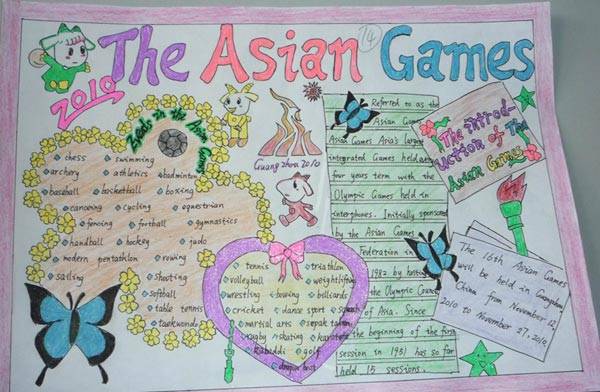 The Asian Games
14
2010
Events in the Asian Games
chess swimming
archery athletics badminton
baseball basketball boxing
canoeing cycling equestrian
fencing football gymnastics
handball hockey judo
modern pentathlon rowing
sailing shooting
softball
table tennis
taekwondo
Guangzhou 2010
tennis triathlon
volleyball weightlifting
wrestling bowing billiards
cricket dance sport squash
martial arts sepak takraw
rugby skating karate
kabaddi golf
dragon boat
Referred to as the
Asian Games
Asian Games Asia's largest
integrated Games held every
four years term with the
Olympic Games held in
interphones. Initially sponsored
by the Asian Games
Federation in
1982 by
the Olympic Council
of Asia. Since
the beginning of the first
session in 1951 has so far
held 15 sessions.
The introd-
uction of The
Asian Games
The 16th Asian Games
will be held in Guangzhou,
China from November 12,
2010 to November 27, 2010